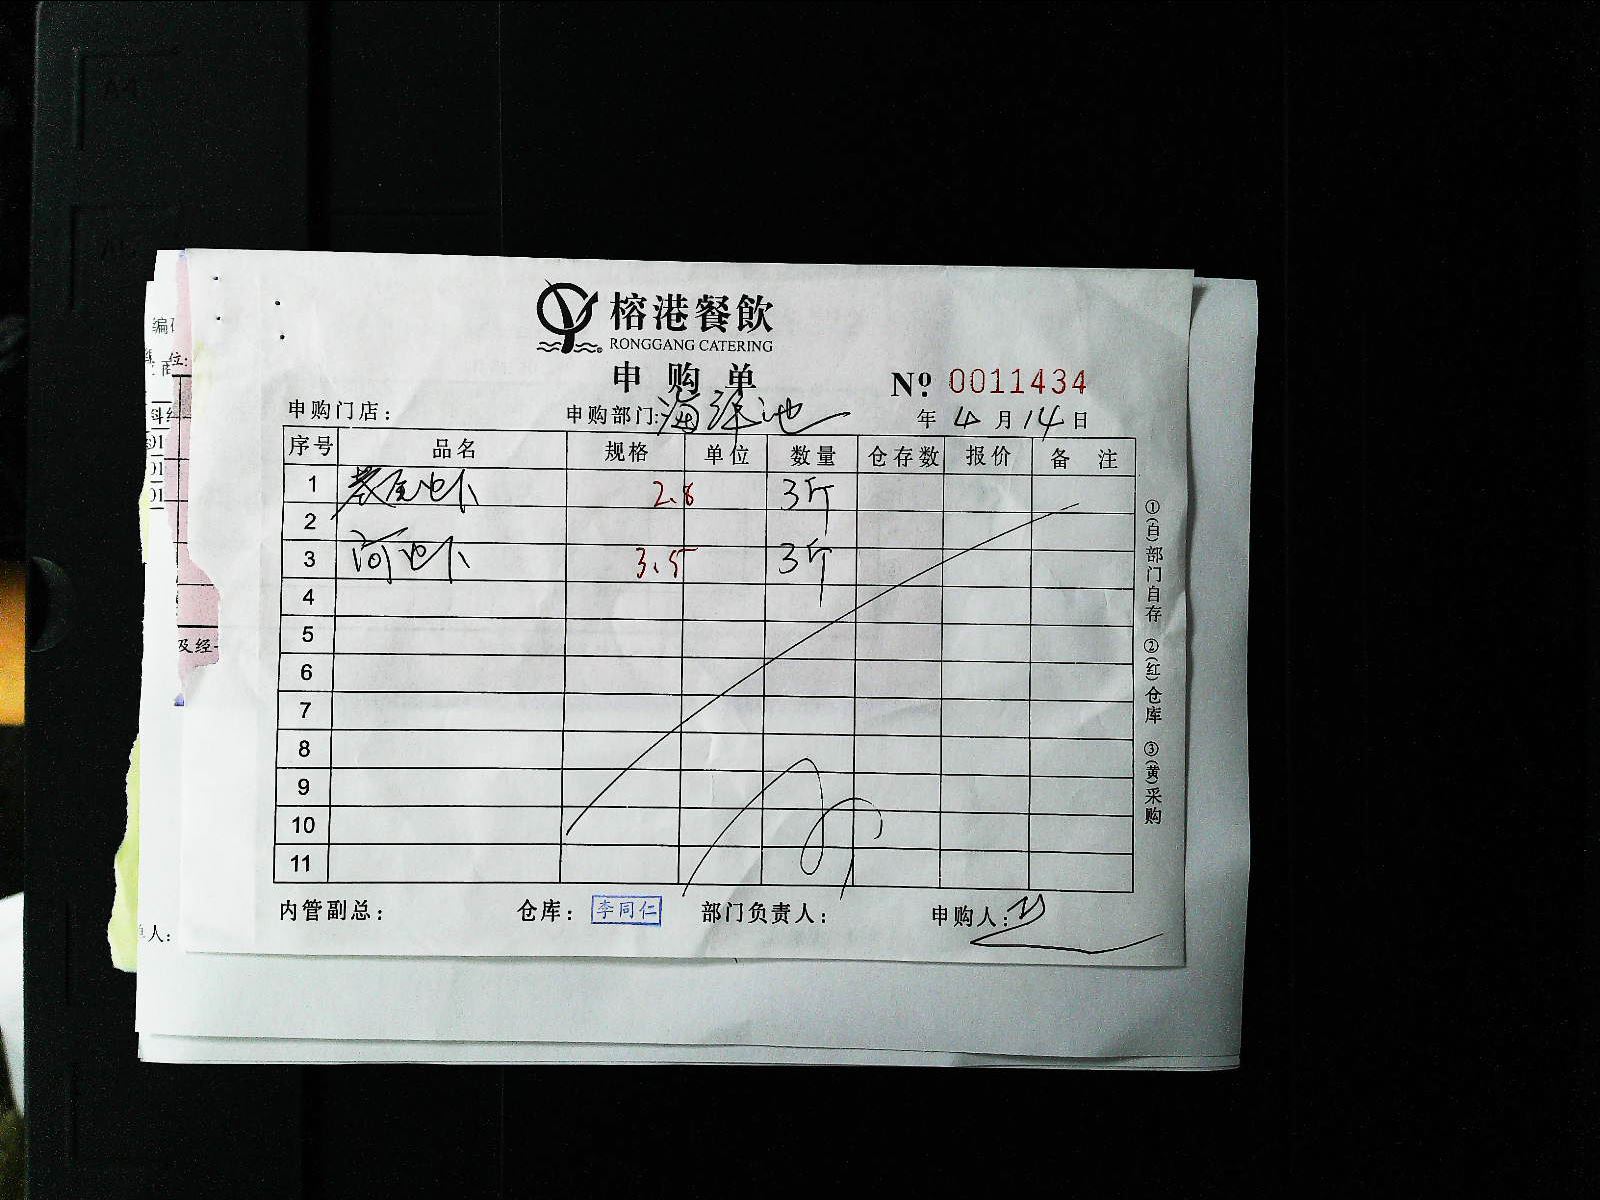 榕港餐飲
RONGGANG CATERING
申购单
№ 0011434
申购门店： 申购部门：海洋池 年 4 月 14 日
序号 品名 规格 单位 数量 仓存数 报价 备注
1 2.8 3斤
2
3 河虾 3.5 3斤
4
5
6
7
8
9
10
11
内管副总： 仓库：李同仁 部门负责人： 申购人：
①(白)部门自存 ②(红)仓库 ③(黄)采购
位：
及经
人：